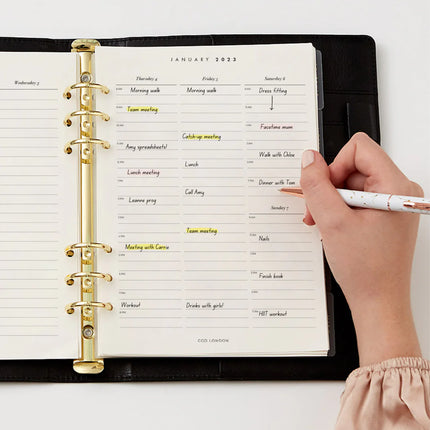 JANUARY 2023
Wednesday 3
Thursday 4
Friday 5
Saturday 6
Morning walk
Morning walk
Dress fitting
Team meeting
Facetime mum
Catch-up meeting
Amy spreadsheets!
Walk with Chloe
Lunch
Lunch meeting
Dinner with Tom
Call Amy
Leanne prog
Sunday 7
Team meeting
Nails
Meeting with Carrie
Finish book
Workout
Drinks with girls!
HIIT workout
CGD LONDON